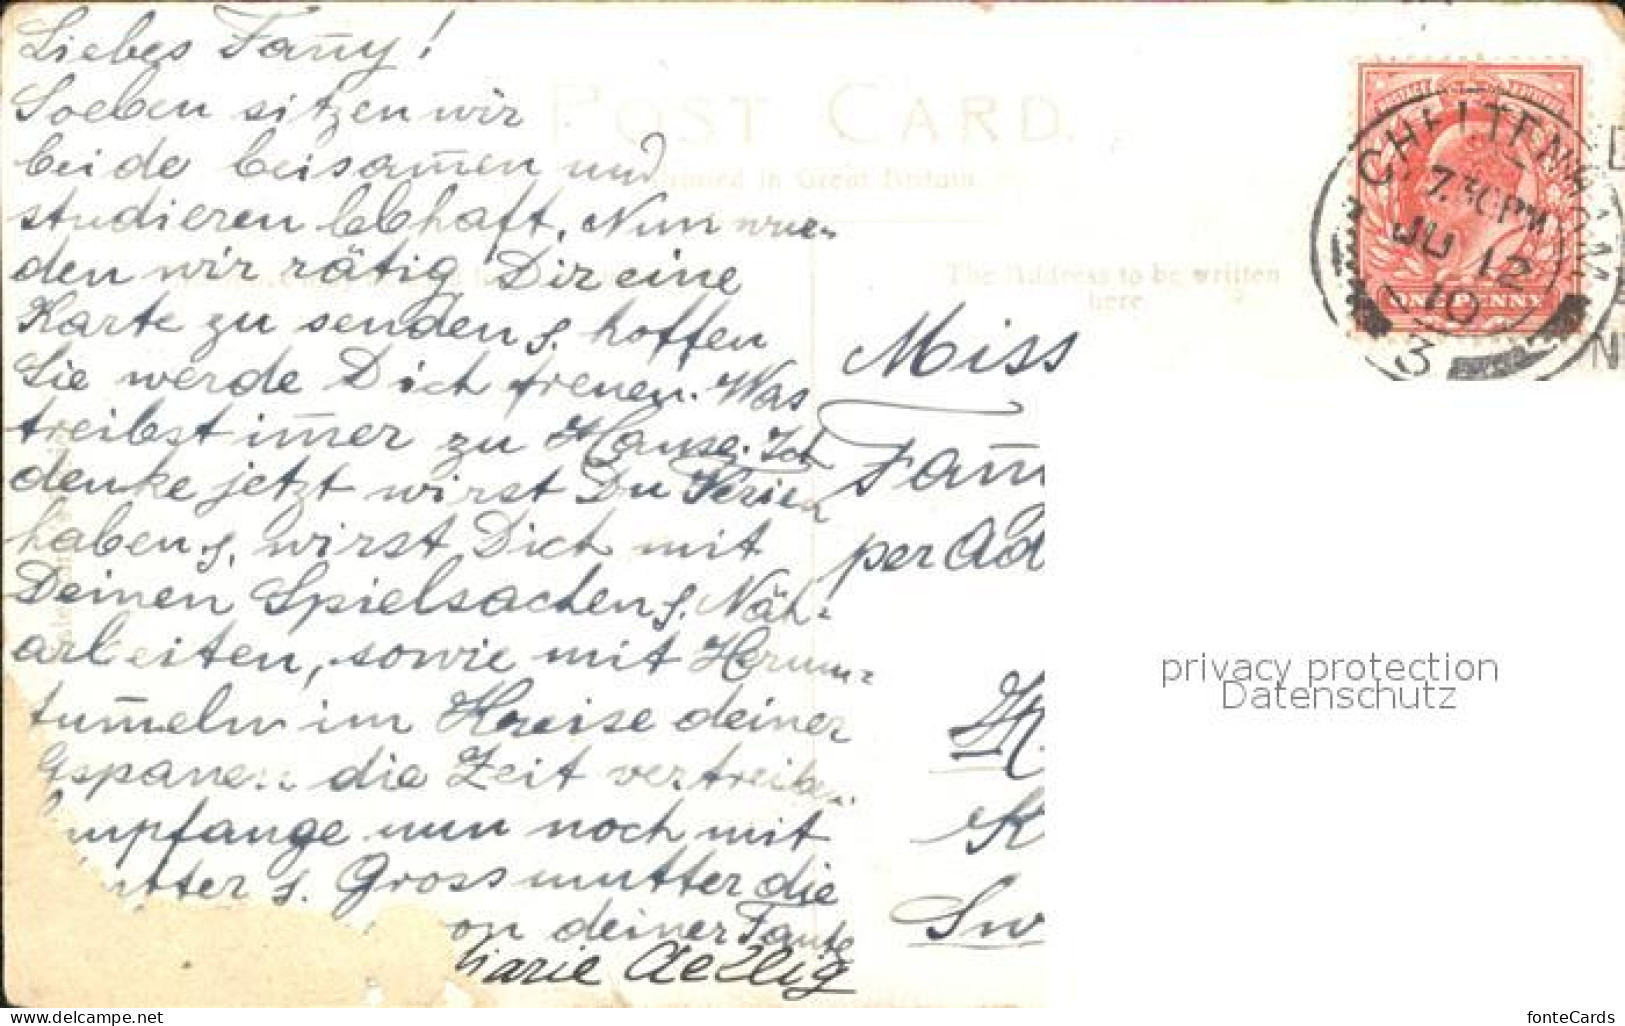 Liebes Fam̅y!
Soeben sitzen wir
beide beisam̅en und
studieren lebhaft. Nun wur-
den wir rätig Dir eine
Karte zu senden & hoffen
Sie werde Dich freuen. Was
treibst im̅er zu Hause. Ich
denke jetzt wirst Du Ferien
haben & wirst Dich mit
Deinen Spielsachen & Näh-
arbeiten, sowie mit Herum-
tum̅eln im Kreise deiner
Gspanen die Zeit vertreiben.
Empfange nun noch mit
utter & Grossmutter die
on deiner Tante
Marie Aellig
POST CARD.
Printed in Great Britain.
The Address to be written
here
CHELTENHAM
7.30PM
JU 12
10
3
ONE PENNY
Miss
Fam̅
per Ad
K
Sw
privacy protection
Datenschutz
https://www.delcampe.net
fonteCards